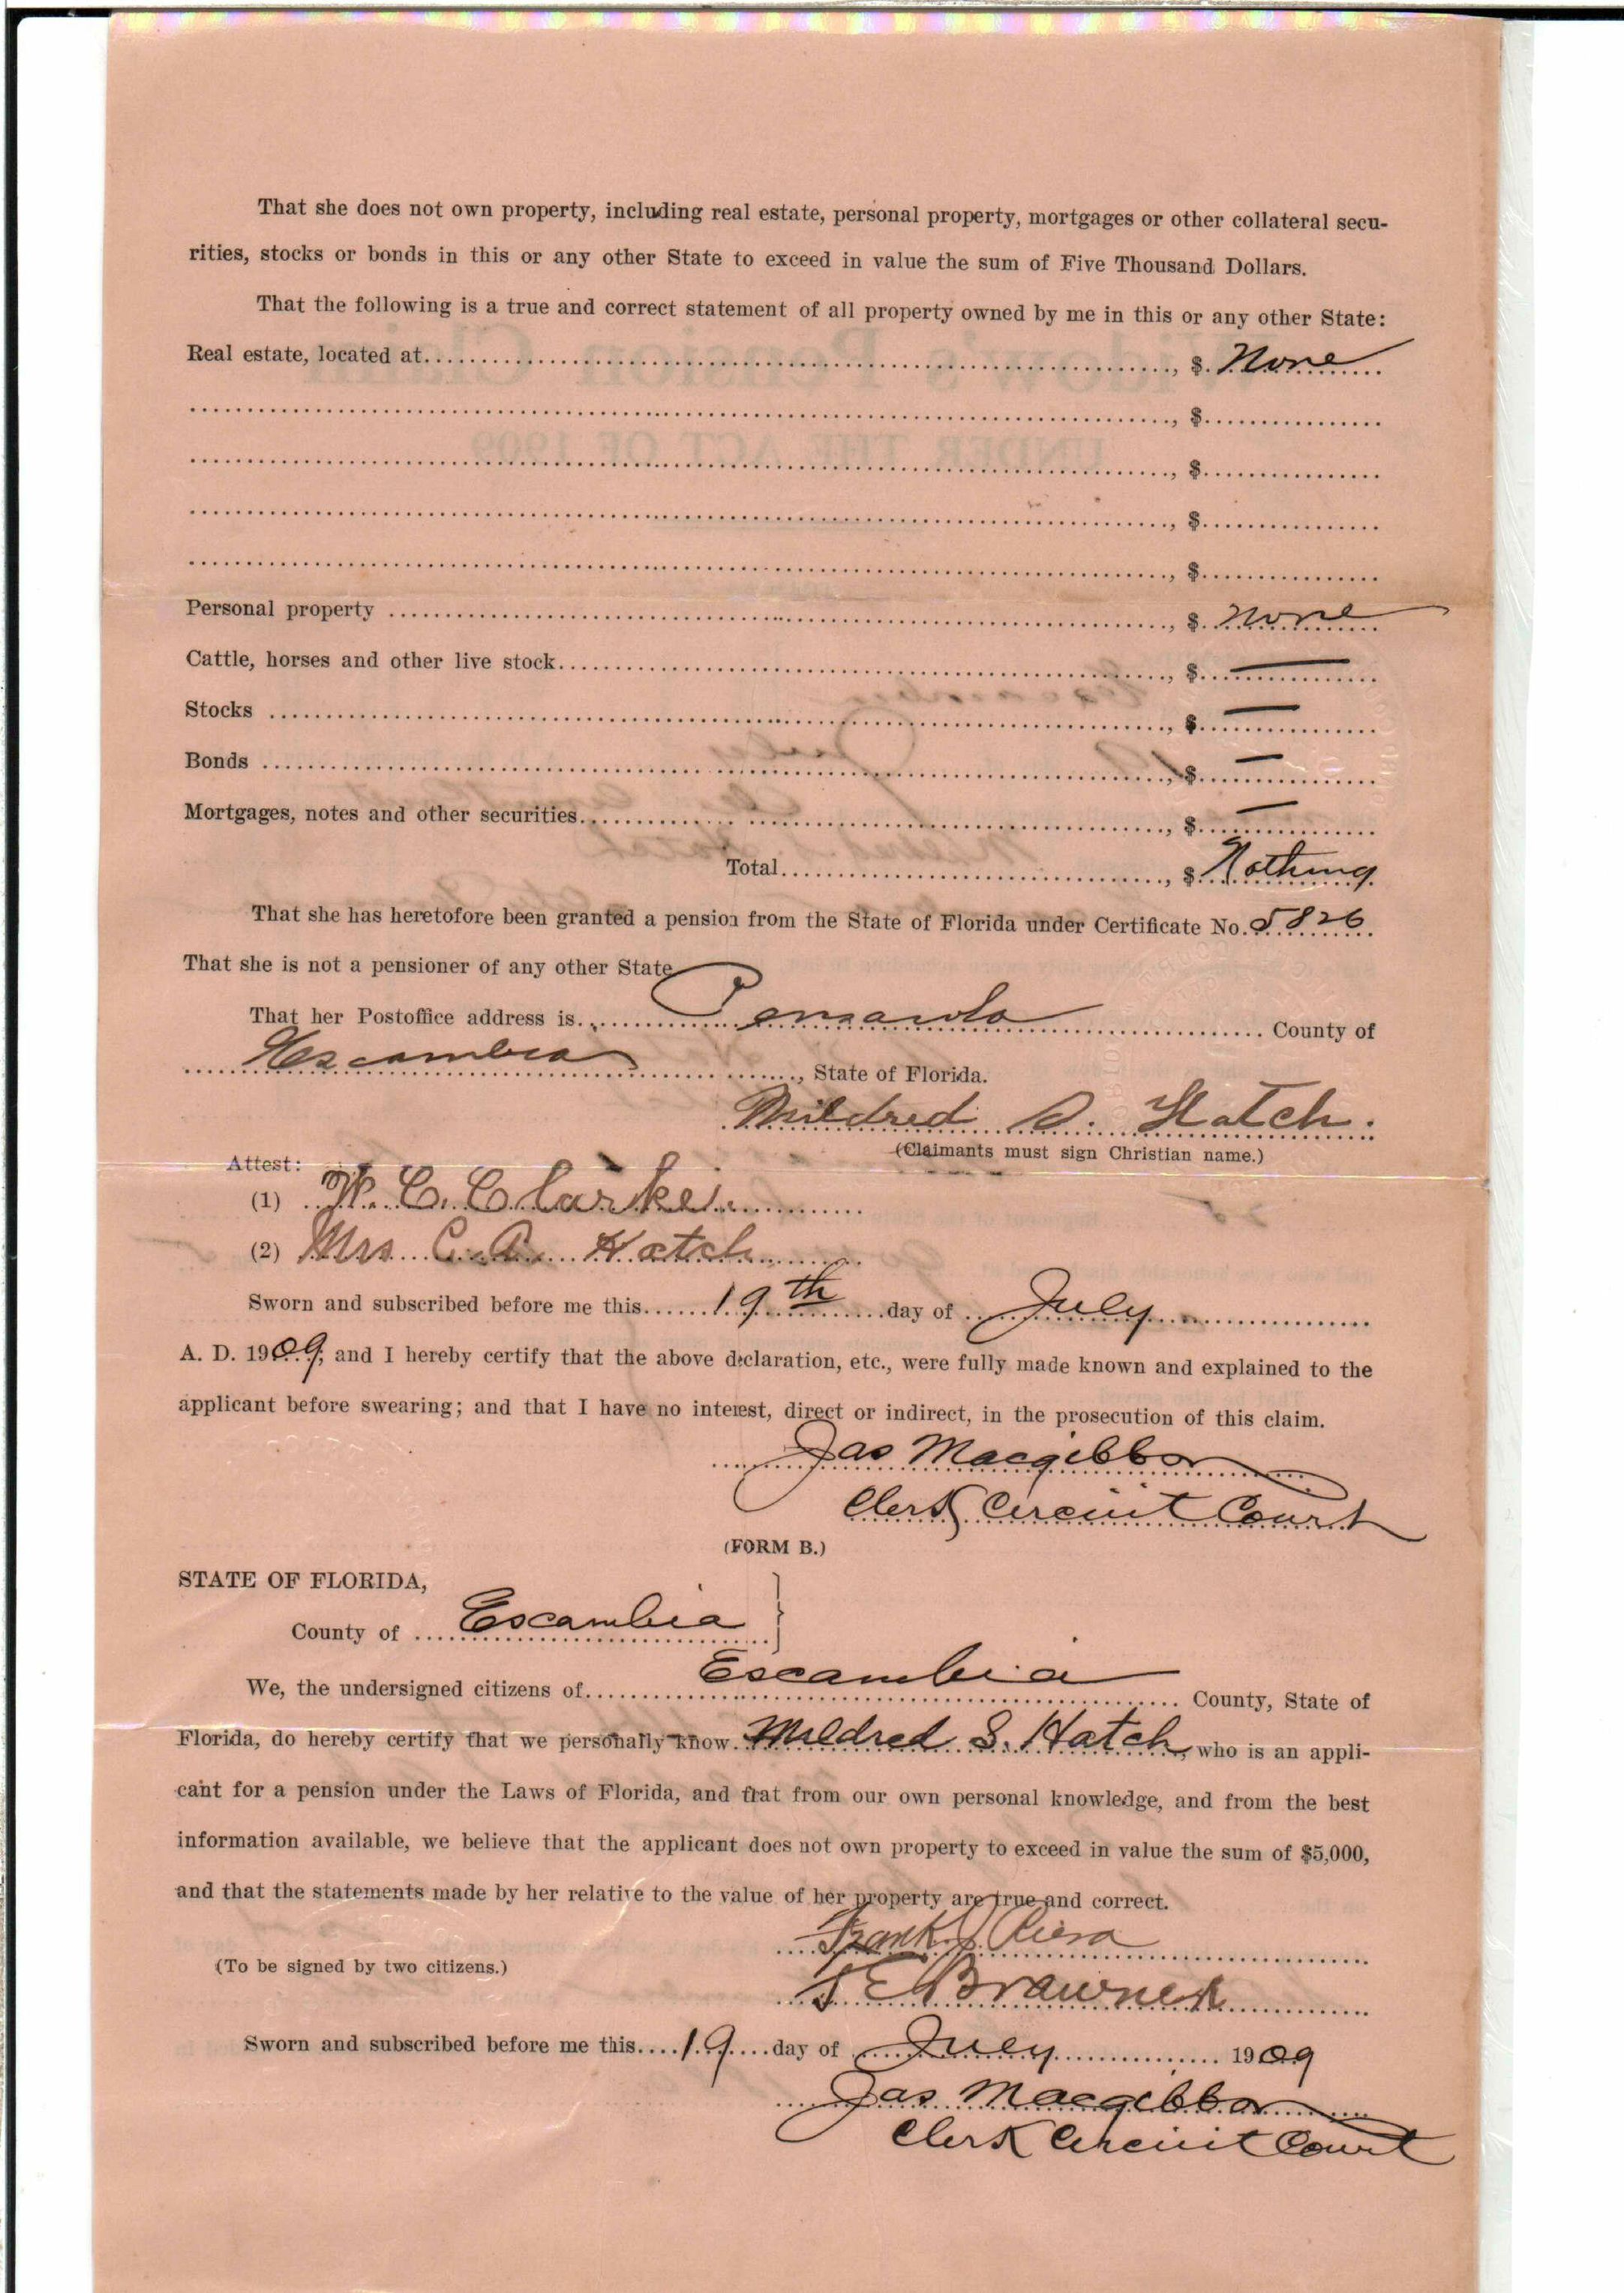 That she does not own property, including real estate, personal property, mortgages or other collateral secu-
rities, stocks or bonds in this or any other State to exceed in value the sum of Five Thousand Dollars.
That the following is a true and correct statement of all property owned by me in this or any other State:
Real estate, located at, $ None
, $
, $
, $
, $
Personal property, $ None
Cattle, horses and other live stock, $ —
Stocks, $ —
Bonds, $ —
Mortgages, notes and other securities, $ —
Total, $ Nothing
That she has heretofore been granted a pension from the State of Florida under Certificate No. 5826
That she is not a pensioner of any other State
That her Postoffice address is Pensacola County of
Escambia, State of Florida.
Mildred S. Hatch.
(Claimants must sign Christian name.)
Attest:
(1) W. C. Clarke
(2) Mrs C. A. Hatch
Sworn and subscribed before me this 19th day of July
A. D. 1909, and I hereby certify that the above declaration, etc., were fully made known and explained to the
applicant before swearing; and that I have no interest, direct or indirect, in the prosecution of this claim.
Jas Macgibbon
Clerk Circuit Court
(FORM B.)
STATE OF FLORIDA,
County of Escambia
We, the undersigned citizens of Escambia County, State of
Florida, do hereby certify that we personally know Mildred S. Hatch, who is an appli-
cant for a pension under the Laws of Florida, and that from our own personal knowledge, and from the best
information available, we believe that the applicant does not own property to exceed in value the sum of $5,000,
and that the statements made by her relative to the value of her property are true and correct.
Frank J. Riera
(To be signed by two citizens.)
T E Brawner
Sworn and subscribed before me this 19 day of July 1909
Jas Macgibbon
Clerk Circuit Court